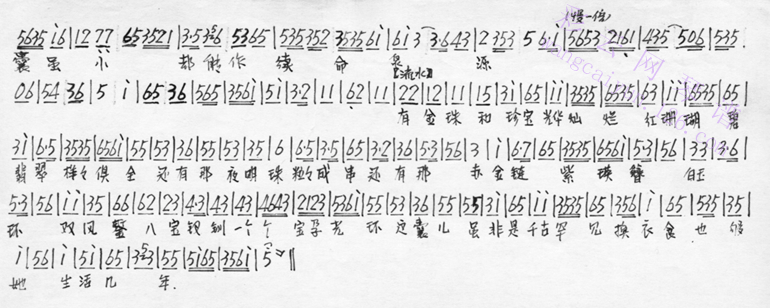 5635 i6 | 12 77 65 3521 | 3·5 3526 5365 | 535352 3535 6i | 6i3 3·643 | 2 353 5 6·i | 5653 2161 | 435 506 | 535·
(慢一倍)
囊虽小 却能作续命泉源
06 | 54 36 | 5 i | 65 36 | 565 356i | 5i | 3·2 | 11 | 62 | 11 | 22 | 12 | 11 | 15 | 3i | 65 | ii | 3535 | 6535 | 63 | ii | 6535 | 65 |
【流水】
有金珠和珍宝 灿烂 红珊瑚
3i | 6·5 | 3535 | 656i | 55 | 53 | 36 | 55 | 53 | 35 | 6 | 6·5 | 3·5 | 65 | 3·2 | 36 | 5·3 | 56 | 3 | i | 6·7 | 65 | 3535 | 656i | 5·3 | 56 | 33 | 3·6 |
翡翠样样俱全 还有那夜明珠粒粒成串还有那 赤金链 紫瑛簪 白玉
5·3 | 56 | ii | 35 | 66 | 62 | 23 | 43 | 43 | 43 | 4643 | 2123 | 536i | 55 | 53 | 36 | 55 | 55 | 3i | 65 | ii | 3535 | 65 | 356i | i | 65 | 535 | 35 |
环 双凤錾八宝钗钏一个个宝孕光环这囊儿虽非是千古罕见换衣食也够
i | 56 | i | 5i | 65 | 323 | 55 | 5165 | 356i | 5 ‖
她 生活几 年.